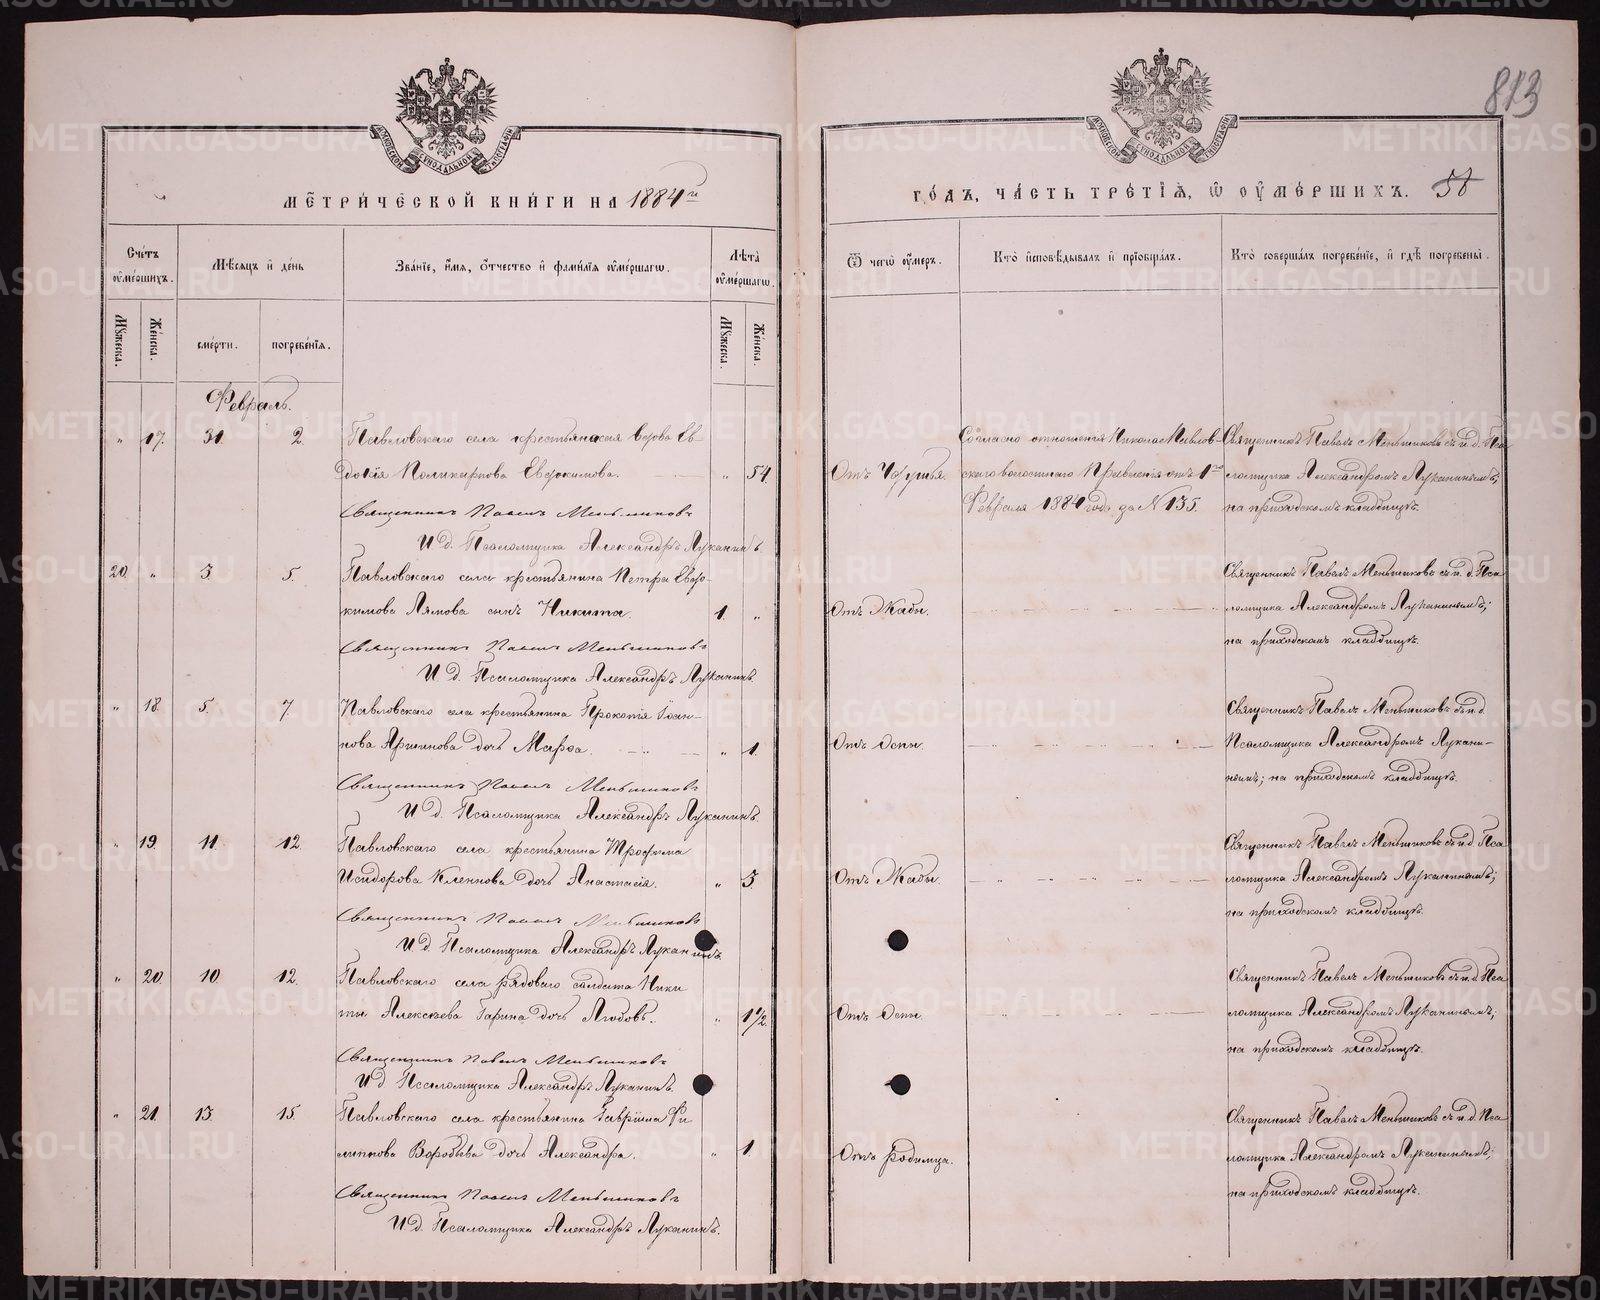 813
МЕТРИЧЕСКОЙ КНИГИ НА 1884 й
ГОДЪ, ЧАСТЬ ТРЕТІЯ, Ѡ ОУМЕРШИХЪ. 58
Счетъ оумершихъ.
Мѣсяцъ и день
Званіе, имя, отчество и фамилія оумершагѡ.
Лѣта оумершагѡ.
Мужеска.
Женска.
смерти.
погребенія.
Мужеска.
Женска.
Ѿ чегѡ оумеръ.
Кто исповѣдывалъ и пріобщалъ.
Кто совершалъ погребеніе, и гдѣ погребены.
Февраль.
" 17. 31. 2. Павловскаго села крестьянская вдова Ев-
докія Поликарпова Евдокимова. " 54.
Священникъ Павелъ Меньшиковъ
И. д. Псаломщика Александръ Луканинъ.
Согласно отношенія Николае Павлов-
скаго волостнаго Правленія отъ 1го
Февраля 1884 года за N 135.
Священникъ Павелъ Меньшиковъ съ и. д. Пса-
ломщика Александромъ Луканинымъ;
на приходскомъ кладбищѣ.
20. " 3. 5. Павловскаго села крестьянина Петра Евдо-
кимова Лямова сынъ Никита. 1. "
Священникъ Павелъ Меньшиковъ
И. д. Псаломщика Александръ Луканинъ.
Отъ Жабы.
Священникъ Павелъ Меньшиковъ съ и. д. Пса-
ломщика Александромъ Луканинымъ;
на приходскомъ кладбищѣ.
" 18. 5. 7. Павловскаго села крестьянина Прокопія Іоан-
нова Аришнова дочь Марѳа. " 1.
Священникъ Павелъ Меньшиковъ
И. д. Псаломщика Александръ Луканинъ.
Отъ Оспы.
Священникъ Павелъ Меньшиковъ съ и. д.
Псаломщика Александромъ Лукани-
нымъ; на приходскомъ кладбищѣ.
" 19. 11. 12. Павловскаго села крестьянина Трофима
Исидорова дочь Анастасія. " 3.
Священникъ Павелъ Меньшиковъ
И. д. Псаломщика Александръ Луканинъ.
Отъ Жабы.
Священникъ Павелъ Меньшиковъ съ и. д. Пса
ломщика Александромъ Луканинымъ;
на приходскомъ кладбищѣ.
" 20. 10. 12. Павловскаго села рядоваго солдата Ники
ты Алексѣева Гарина дочь Любовь. " 1½
Священникъ Павелъ Меньшиковъ
И. д. Псаломщика Александръ Луканинъ.
Отъ Оспы.
Священникъ Павелъ Меньшиковъ съ и. д. Пса
ломщика Александромъ Луканинымъ;
на приходскомъ кладбищѣ.
" 21. 13. 15. Павловскаго села крестьянина Гавріила Фи
липпова Воробьева дочь Александра. " 1.
Священникъ Павелъ Меньшиковъ
И. д. Псаломщика Александръ Луканинъ.
Отъ родимца.
Священникъ Павелъ Меньшиковъ съ и. д. Пса
ломщика Александромъ Луканинымъ;
на приходскомъ кладбищѣ.
METRIKI.GASO-URAL.RU